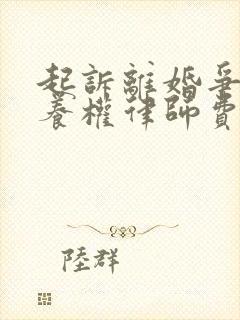 起訴離婚爭
養權律師費
陸群